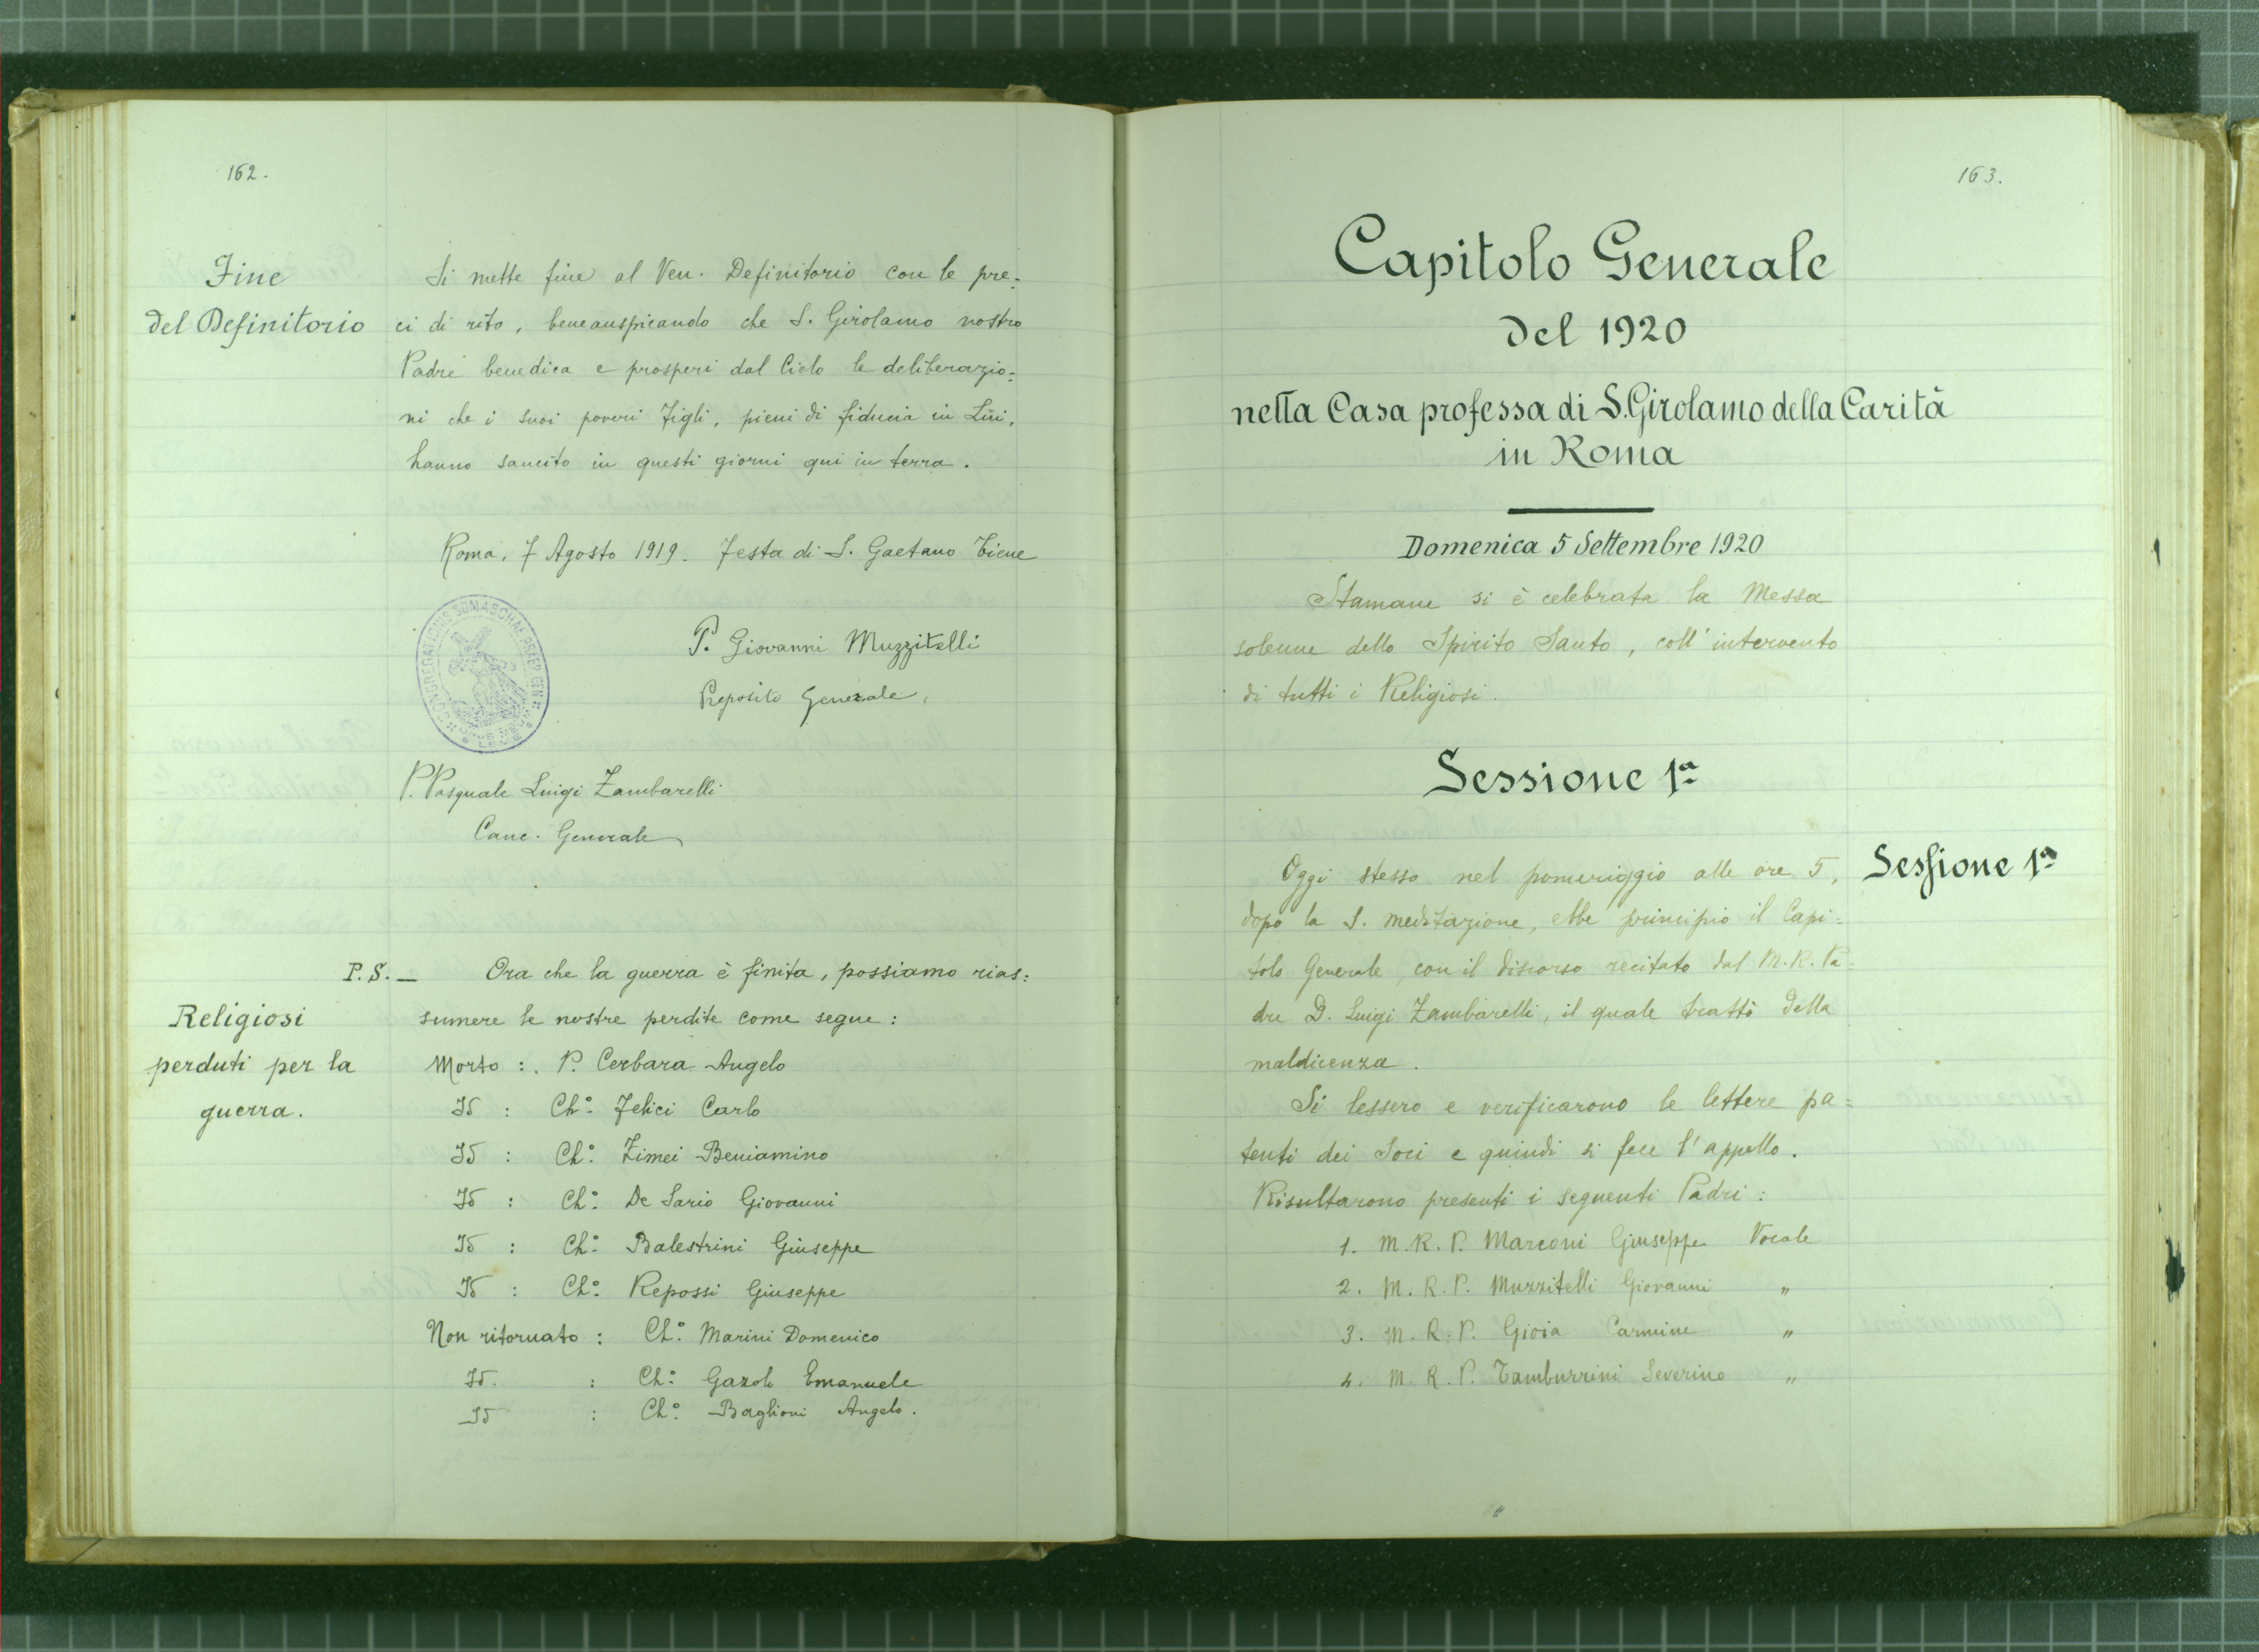 162.
Fine
del Definitorio
Si mette fine al Ven. Definitorio con le pre=
ci di rito, beneauspicando che S. Girolamo nostro
Padre benedica e prosperi dal Cielo le deliberazio=
ni che i suoi poveri figli, pieni di fiducia in Lui,
hanno sancito in questi giorni qui in terra.
Roma, 7 Agosto 1919. Festa di S. Gaetano Tiene
CONGREGATIONIS SOMASCHAE PRAEP. GEN.
ONUS MEUM LEVE
P. Giovanni Muzzitelli
Preposito Generale,
P. Pasquale Luigi Zambarelli
Canc. Generale
P.S. — Ora che la guerra è finita, possiamo rias:
sumere le nostre perdite come segue:
Religiosi
perduti per la
guerra.
Morto : . P. Cerbara Angelo
Id : Ch.° Felici Carlo
Id : Ch.° Zimei Beniamino
Id : Ch.° De Sario Giovanni
Id : Ch.° Balestrini Giuseppe
Id : Ch.° Repossi Giuseppe
Non ritornato : Ch.° Marini Domenico
Id. : Ch.° Gazoli Emanuele
Id : Ch.° Baglioni Angelo.
163.
Capitolo Generale
del 1920
nella Casa professa di S. Girolamo della Carità
in Roma
Domenica 5 Settembre 1920
Stamane si è celebrata la Messa
solenne dello Spirito Santo, coll'intervento
di tutti i Religiosi.
Sessione 1ª
Sessione 1ª
Oggi stesso nel pomeriggio alle ore 5,
dopo la S. meditazione, ebbe principio il Capi=
tolo Generale con il discorso recitato dal M. R. Pa=
dre D. Luigi Zambarelli, il quale trattò della
maldicenza.
Si lessero e verificarono le lettere pa=
tenti dei Soci e quindi si fece l'appello.
Risultarono presenti i seguenti Padri:
1. M. R. P. Marconi Giuseppe Vocale
2. M. R. P. Muzzitelli Giovanni "
3. M. R. P. Gioia Carmine "
4. M. R. P. Tamburrini Severino "